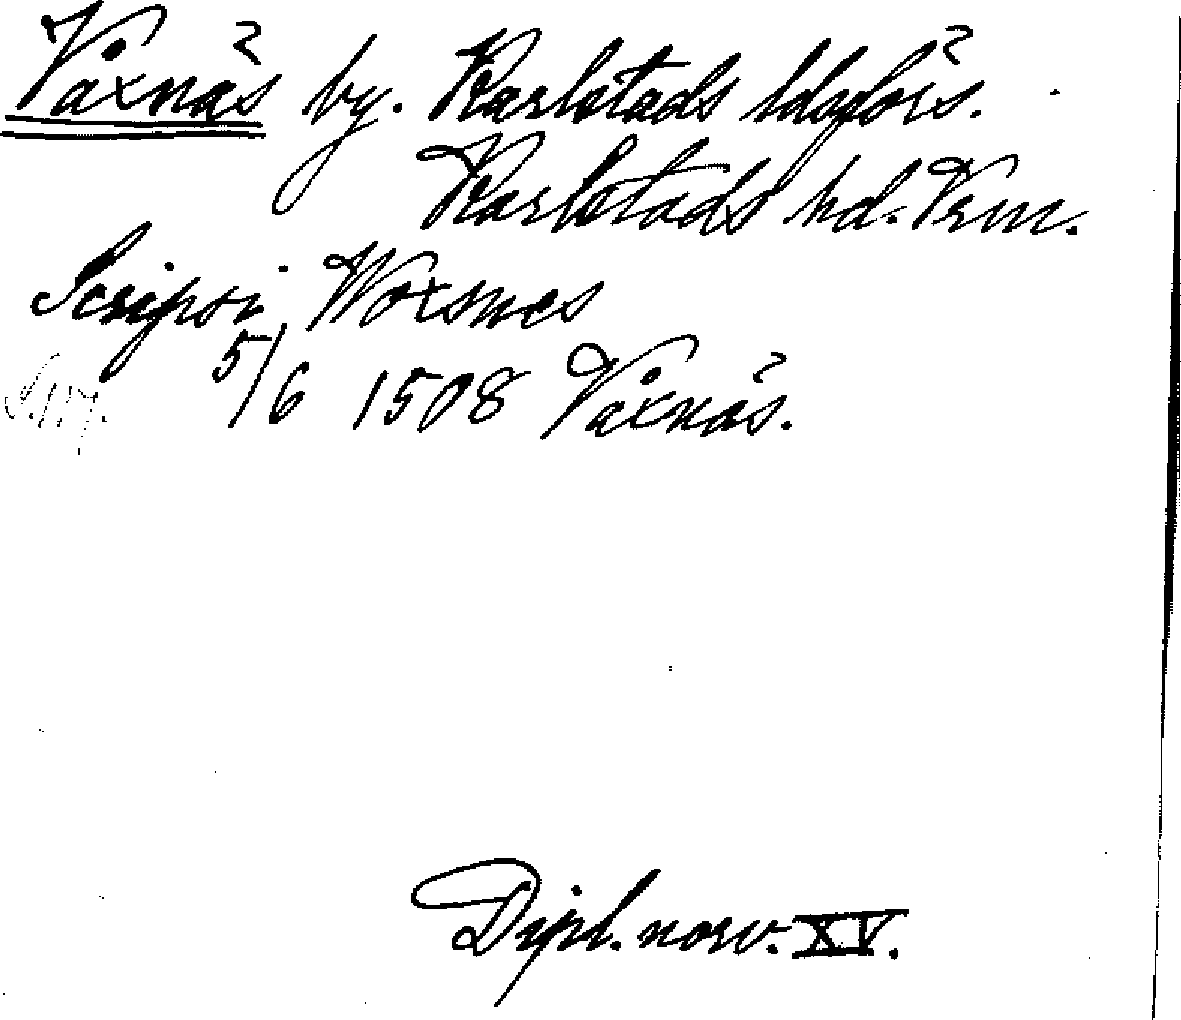 Växnäs by. Karlstads ldsförs.
Karlstads hd. Vrm.
Scripsi Woxsnes
5/6 1508 Växnäs.
Dipl. norv. XV.